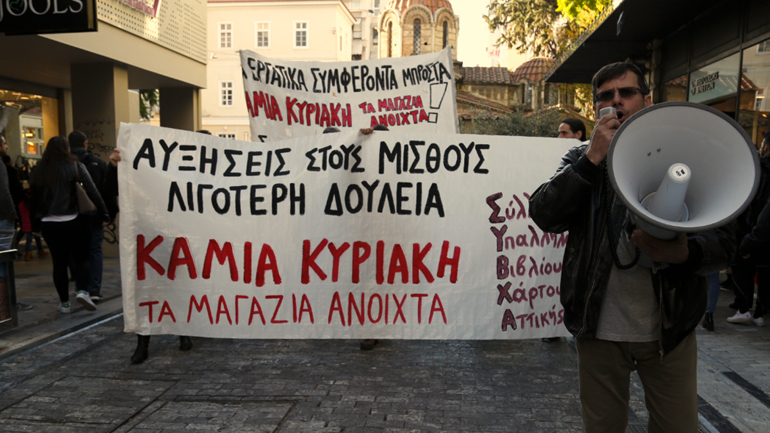 OOLS
ΕΡΓΑΤΙΚΑ ΣΥΜΦΕΡΟΝΤΑ ΜΠΡΟΣΤΑ
ΚΑΜΙΑ ΚΥΡΙΑΚΗ ΤΑ ΜΑΓΑΖΙΑ ΑΝΟΙΧΤΑ!
ΑΥΞΗΣΕΙΣ ΣΤΟΥΣ ΜΙΣΘΟΥΣ
ΛΙΓΟΤΕΡΗ ΔΟΥΛΕΙΑ
ΚΑΜΙΑ ΚΥΡΙΑΚΗ
ΤΑ ΜΑΓΑΖΙΑ ΑΝΟΙΧΤΑ
Σύλ
Υπαλλή
Βιβλίου
Χάρτου
Αττικής